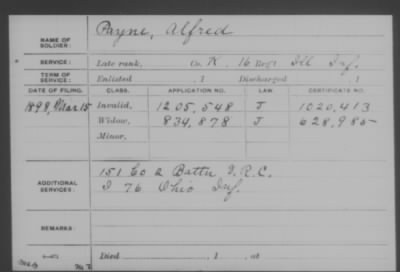 NAME OF SOLDIER: Payne, Alfred
SERVICE: Late rank, Co. K, 16 Regt Ill Inf.
TERM OF SERVICE: Enlisted , 1 Discharged , 1
DATE OF FILING. CLASS. APPLICATION NO. LAW CERTIFICATE NO.
1898, Mar. 15 Invalid, 1205,548 J 1020,413
Widow, 834,878 J 628,985
Minor,
ADDITIONAL SERVICES: 151 Co 2 Battn V.R.C.
I 76 Ohio Inf.
REMARKS:
Died , 1 , at